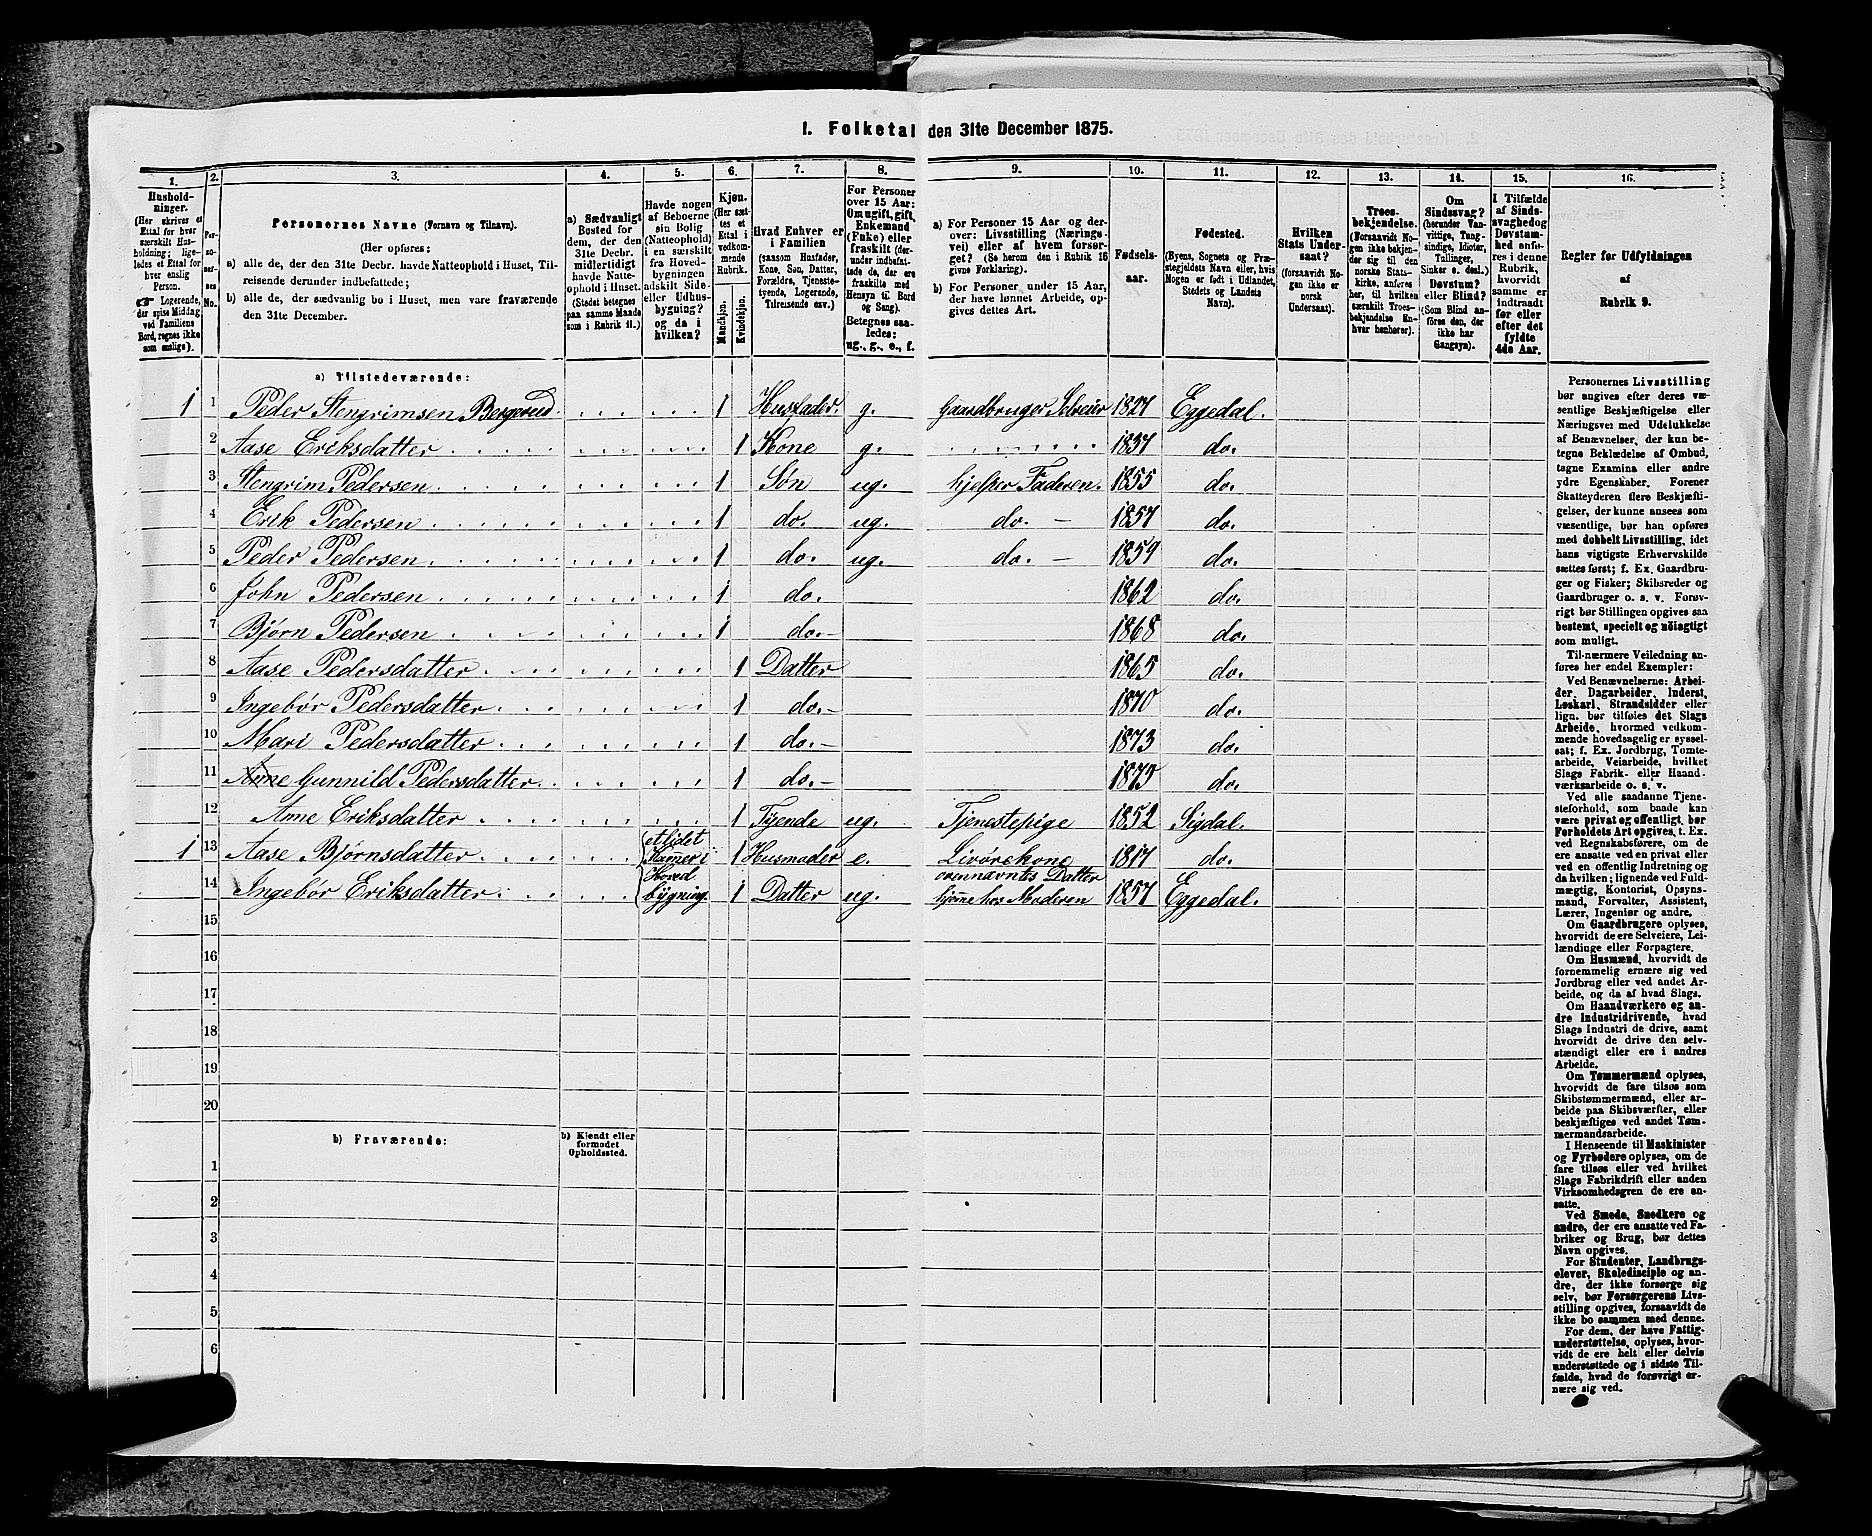 I. Folketal den 31te December 1875.
1. 2. 3. 4. 5. 6. 7. 8. 9. 10. 11. 12. 13. 14. 15. 16.
Hushold-
ninger.
(Her skrives et
Ettal for hver
særskilt Hus-
holdning; lige-
ledes et Ettal for
hver enslig
Person.
☞ Logerende,
der spise Middag
ved Familiens
Bord, regnes ikke
som enslige).
Per-
soner-
nes
No.
Personernes Navne (Fornavn og Tilnavn).
(Her opføres:
a) alle de, der den 31te Decbr. havde Natteophold i Huset, Til-
reisende derunder indbefattede;
b) alle de, der sædvanlig bo i Huset, men vare fraværende
den 31te December.
a) Sædvanligt
Bosted for
dem, der den
31te Decbr.
midlertidigt
havde Natte-
ophold i Huset.
(Stedet betegnes
paa samme Maade
som i Rubrik 11.)
Havde nogen
af Beboerne
sin Bolig
(Natteophold)
i en særskilt
fra Hoved-
bygningen
adskilt Side-
eller Udhus-
bygning?
og da i
hvilken?
Kjøn.
(Her sæt-
tes et
Ettal i
vedkom-
mende
Rubrik.
Mandkjøn.
Kvindekjøn.
Hvad Enhver er
i Familien
(saasom Husfader,
Kone, Søn, Datter,
Forældre, Tjeneste-
tyende, Logerende,
Tilreisende osv.)
For Personer
over 15 Aar:
Om ugift, gift,
Enkemand
(Enke) eller
fraskilt (der-
under indbefat-
tede de, der ere
fraskilte med
Hensyn til Bord
og Seng).
Betegnes saa-
ledes:
ug., g., e., f.
a) For Personer 15 Aar og der-
over: Livsstilling (Nærings-
vei) eller af hvem forsør-
get? (Se herom den i Rubrik 16
givne Forklaring).
b) For Personer under 15 Aar,
der have lønnet Arbeide, op-
gives dettes Art.
Fødsels-
aar.
Fødested.
(Byens, Sognets og Præ-
stegjeldets Navn eller, hvis
Nogen er født i Udlandet,
Stedets og Landets
Navn).
Hvilken
Stats Under-
saat?
(forsaavidt No-
gen ikke er
norsk
Undersaat).
Troes-
bekjendelse.
(Forsaavidt No-
gen ikke bekjen-
der sig til den
norske Stats-
kirke, anføres
her, til hvilken
særskilt Troes-
bekjendelse En-
hver henhører).
Om
Sindssvag?
(herunder Van-
vittige, Tung-
sindige, Idioter,
Tullinger,
Sinker o. desl.)
Døvstum?
eller Blind?
(Som Blind an-
føres den, der
ikke har
Gangsyn).
I Tilfælde
af Sinds-
svaghed og
Døvstum-
hed anfø-
res i denne
Rubrik,
hvorvidt
samme er
indtraadt
før eller
efter det
fyldte
4de Aar.
Regler for Udfyldningen
af
Rubrik 9.
a) Tilstedeværende:
1 1 Peder Stengrimsen Bergerud 1 Husfader. g. Gaardbruger Selveier 1827 Eggedal.
2 Aase Eriksdatter 1 Kone g. 1837 do.
3 Stengrim Pedersen 1 Søn ug. hjelper Faderen. 1855 do.
4 Erik Pedersen 1 do. ug. do. – 1857 do.
5 Peder Pedersen 1 do. ug. do. – 1859 do.
6 John Pedersen 1 do. 1862 do.
7 Bjørn Pedersen 1 do.– 1868 do.
8 Aase Pedersdatter 1 Datter 1865 do.
9 Ingebør Pedersdatter 1 do.– 1870 do.
10 Mari Pedersdatter 1 do.– 1873 do.
11 Anne Gunnild Pedersdatter 1 do.– 1875 do.
12 Anne Eriksdatter 1 Tyende ug. Tjenestepige 1852 Sigdal.
1 13 Aase Bjørnsdatter et lidet Kamer i 1 Husmoder e. Livørekone 1817 do.
14 Ingebør Eriksdatter Hoved bygning. 1 Datter ug. ovennævntes Datter hjemme hos Moderen 1857 Eggedal.
15
16
17
18
19
20
b) Fraværende:
b) Kjendt eller
formodet
Opholdssted.
1
2
3
4
5
6
Personernes Livsstilling
bør angives efter deres væ-
sentlige Beskjæftigelse eller
Næringsvei med Udelukkelse
af Benævnelser, der kun be-
tegne Beklædelse af Ombud,
tagne Examina eller andre
ydre Egenskaber. Forener
Skatteyderen flere Beskjæfti-
gelser, der kunne ansees som
væsentlige, bør han opføres
med dobbelt Livsstilling, idet
hans vigtigste Erhvervskilde
sættes først; f. Ex. Gaardbru-
ger og Fisker; Skibsreder og
Gaardbruger o. s. v. Forøv-
rigt bør Stillingen opgives saa
bestemt, specielt og nøiagtigt
som muligt.
Til nærmere Veiledning an-
føres her endel Exempler:
Ved Benævnelserne: Arbei-
der, Dagarbeider, Inderst,
Løskarl, Strandsidder eller
lign. bør tilføies det Slags
Arbeide, hvormed vedkom-
mende hovedsagelig er syssel-
sat; f. Ex. Jordbrug, Tomte-
arbeide, Veiarbeide, hvilket
Slags Fabrik- eller Haand-
værksarbeide o. s. v.
Ved alle saadanne Tjene-
steforhold, som baade kan
være privat og offentligt, bør
Forholdets Art opgives, t. Ex.
ved Regnskabsførere, om de
ere ansatte ved en privat eller
ved en offentlig Indretning og
da hvilken; lignende ved Fuld-
mægtig, Kontorist, Opsyns-
mand, Forvalter, Assistent,
Lærer, Ingeniør og andre.
Om Gaardbrugere oplyses,
hvorvidt de ere Selveiere, Lei-
lændinge eller Forpagtere.
Om Husmænd, hvorvidt de
fornemmelig ernære sig ved
Jordbrug eller ved andet Ar-
beide, og da af hvad Slags.
Om Haandværkere og an-
dre Industridrivende, hvad
Slags Industri de drive, samt
hvorvidt de drive den selv-
stændigt eller ere i andres
Arbeide.
Om Tømmermænd oplyses,
hvorvidt de fare tilsøs som
Skibstømmermænd, eller ar-
beide paa Skibsværfter, eller
beskjæftiges ved andet Tøm-
mermandsarbeide.
I Henseende til Maskinister
og Fyrbødere oplyses, om de
fare tilsøs eller ved hvilket
Slags Fabrikdrift eller anden
Virksomhedsgren de ere an-
satte.
Ved Smede, Snedkere og
andre, der ere ansatte ved Fa-
briker og Brug, bør dettes
Navn opgives.
For Studenter, Landbrugs-
elever, Skoledisciple og an-
dre, der ikke forsørge sig
selv, bør Forsørgerens Livs-
stilling opgives, forsaavidt de
ikke bo sammen med denne.
For dem, der have Fattig-
understøttelse, oplyses, hvor-
vidt de ere helt eller delvis
understøttede og i sidste Til-
fælde, hvad de forøvrigt er-
nære sig ved.